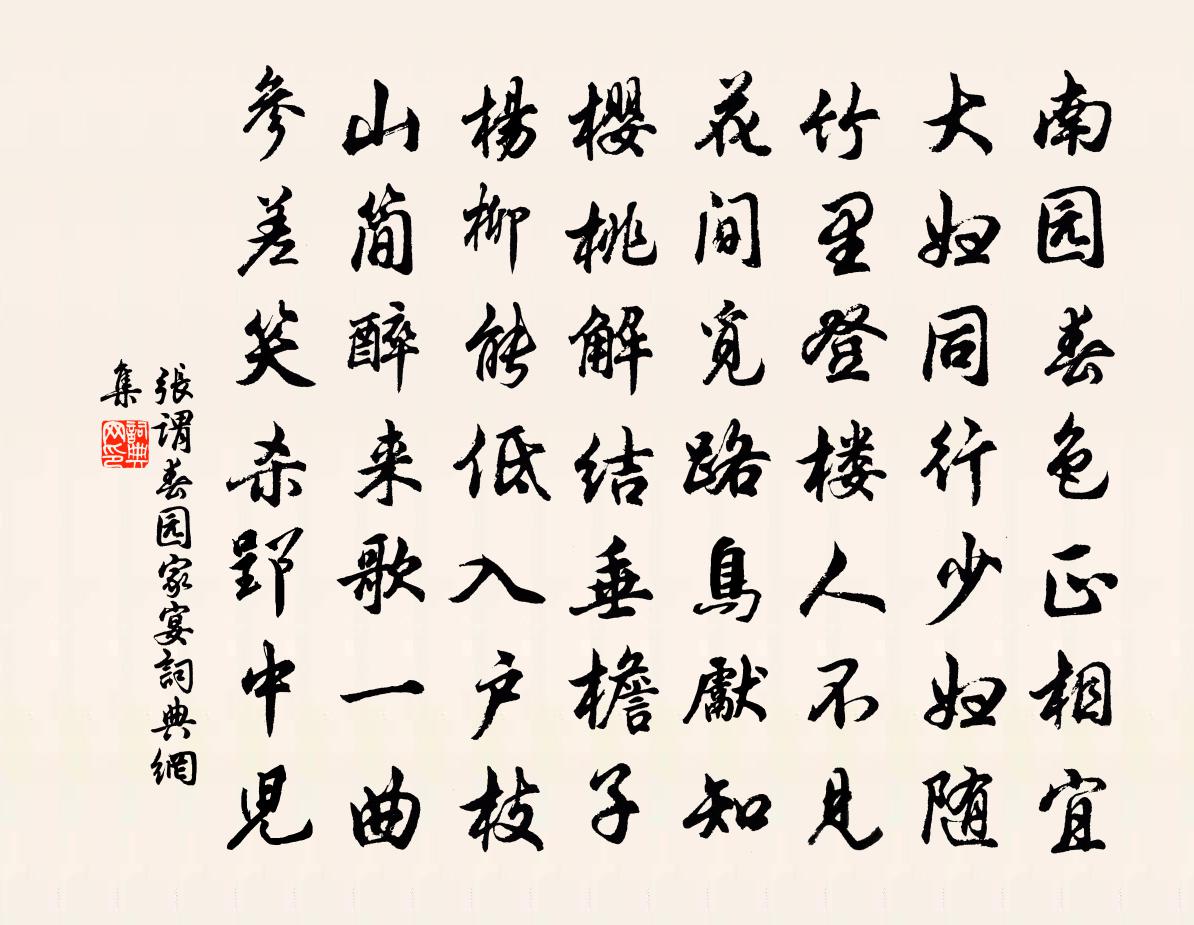 南园春色正相宜
大妇同行少妇随
竹里登楼人不见
花间觅路鳥獻知
櫻桃解结垂檐子
楊柳能低入户枝
山简醉来歌一曲
參差笑杀郢中児
張謂春园家宴詞典網
集
詞典网印